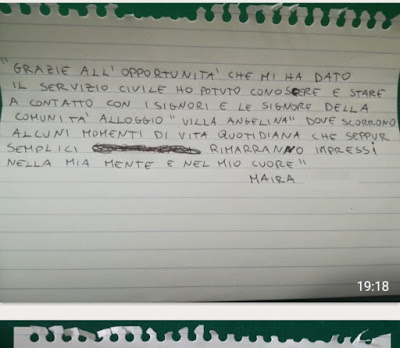 "GRAZIE ALL'OPPORTUNITA' CHE MI HA DATO
IL SERVIZIO CIVILE HO POTUTO CONOSCERE E STARE
A CONTATTO CON I SIGNORI E LE SIGNORE DELLA
COMUNITA' ALLOGGIO "VILLA ANGELINA" DOVE SCORRONO
ALCUNI MOMENTI DI VITA QUOTIDIANA CHE SEPPUR
SEMPLICI RIMARRANNO IMPRESSI
NELLA MIA MENTE E NEL MIO CUORE"
MAIRA
19:18